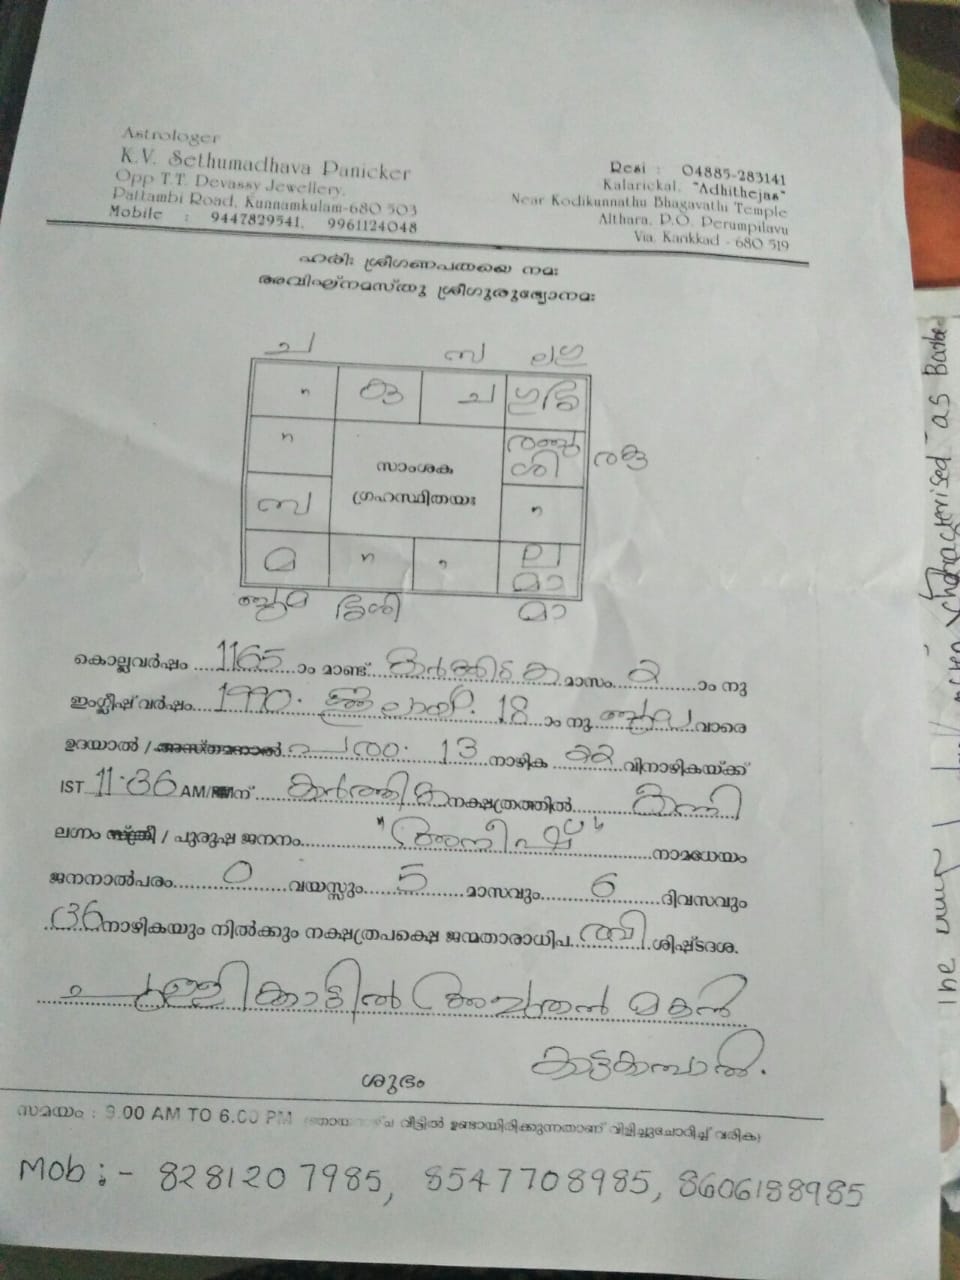 Astrologer
K.V. Sethumadhava Panicker
Opp T.T. Devassy Jewellery,
Pattambi Road, Kunnamkulam-680 503
Mobile : 9447829541, 9961124048
Resi : 04885-283141
Kalarickal, "Adhithejas"
Near Kodikunnathu Bhagavathi Temple
Althara, P.O. Perumpilavu
Via. Karikkad - 680 519
ഹരിഃ ശ്രീഗണപതയെ നമഃ
അവിഘ്നമസ്തു ശ്രീഗുരുഭ്യോനമഃ
ച
സാംശക
ഗ്രഹസ്ഥിതയഃ
മാ
കൊല്ലവർഷം 1165 ാം മാണ്ട് കർക്കിടക മാസം 2 ാം നു
ഇംഗ്ലീഷ് വർഷം 1990 ജൂലായ് 18 ാം നു ബുധ വാരെ
ഉദയാൽ / അസ്തമനാൽ 13 നാഴിക 22 വിനാഴികയ്ക്ക്
IST 11.36 AM/PM ന് കാർത്തിക നക്ഷത്രത്തിൽ കന്നി
ലഗ്നം സ്ത്രീ / പുരുഷ ജനനം "അനീഷ്" നാമധേയം
ജനനാൽപരം 0 വയസ്സും 5 മാസവും 6 ദിവസവും
36 നാഴികയും നിൽക്കും നക്ഷത്രപക്ഷെ ജന്മതാരാധിപ രവി ശിഷ്ടദശ.
മകൻ
കാട്ടകാമ്പാൽ.
ശുഭം
സമയം : 9.00 AM TO 6.00 PM വീട്ടിൽ ഉണ്ടായിരിക്കുന്നതാണ് വിളിച്ചുചോദിച്ച് വരിക
Mob :- 8281207985, 8547708985, 8606188985
characterised as